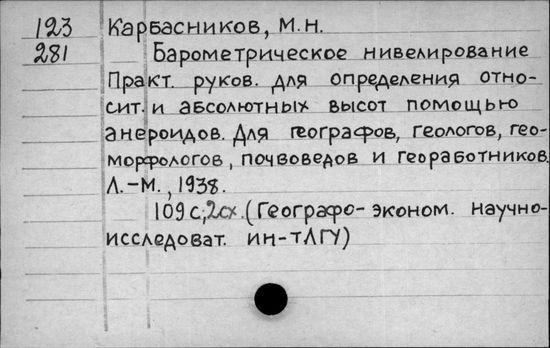 123 Карбасников, М.Н.
281 Барометрическое нивелирование
Практ. руков. для определения отно-
сит. и абсолютных высот помощью
анероидов. Для географов, геологов, гео-
морфологов, почвоведов и геоработников.
Л.-М., 1938.
109 с; 2 сх. (Географо-эконом. научно-
исследоват. ин-т ЛГУ)